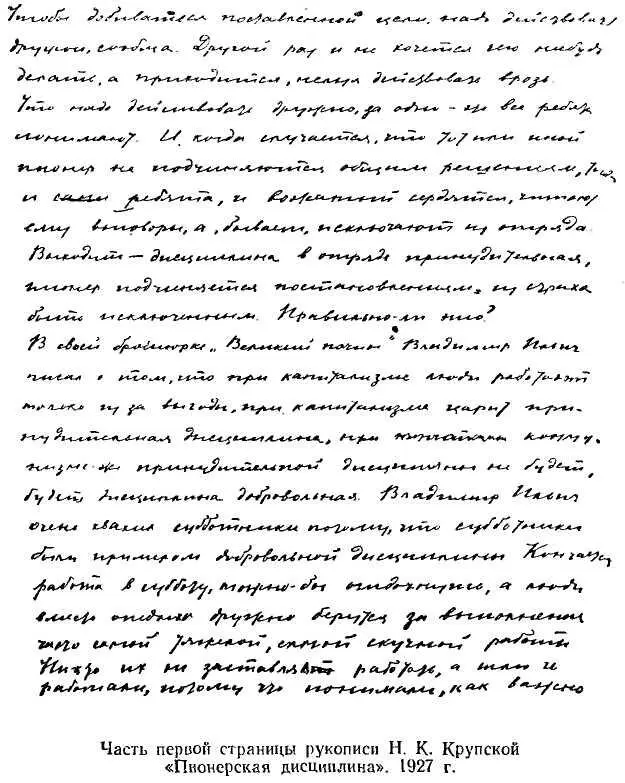 Чтобы добиваться поставленной цели, надо действовать
дружно, сообща. Другой раз и не хочется чего нибудь
делать, а приходится, нельзя действовать врозь.
Что надо действовать дружно, за одно - же все ребята
понимают. И, когда случается, что тот или иной
пионер не подчиняются общим решениям, тогда
и сами ребята, и вожатый сердятся, читают
ему выговоры, а, бывает, исключают из отряда.
Выходит — дисциплина в отряде принудительная,
пионер подчиняется постановлениям из страха
быть исключенным. Правильно-ли это?
В своей брошюрке „Великий почин" Владимир Ильич
писал о том, что при капитализме люди работают
только из за выгоды, при капитализме царит при-
нудительная дисциплина, при комму-
низме-же принудительной дисциплины не будет,
будет дисциплина добровольная. Владимир Ильич
очень хвалил субботники потому, что субботники
были примером добровольной дисциплины. Кончается
работа в субботу, можно-бы отдохнуть, а люди
вместо отдыха дружно берутся за выполнение
часто самой тяжелой, самой скучной работы.
Никто их не заставлял работать, а шли и
работали, потому что понимали, как важно
Часть первой страницы рукописи Н. К. Крупской
«Пионерская дисциплина». 1927 г.